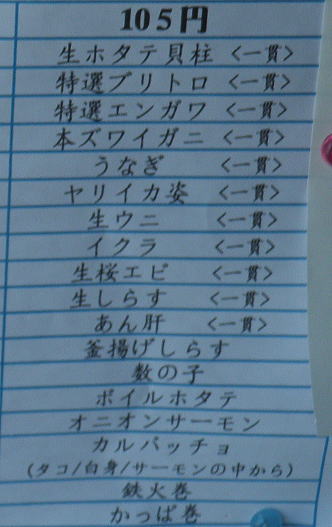 105円
生ホタテ貝柱 <一貫>
特選ブリトロ <一貫>
特選エンガワ <一貫>
本ズワイガニ <一貫>
うなぎ <一貫>
ヤリイカ姿 <一貫>
生ウニ <一貫>
イクラ <一貫>
生桜エビ <一貫>
生しらす <一貫>
あん肝 <一貫>
釜揚げしらす
数の子
ボイルホタテ
オニオンサーモン
カルパッチョ
(タコ/白身/サーモンの中から)
鉄火巻
かっぱ巻